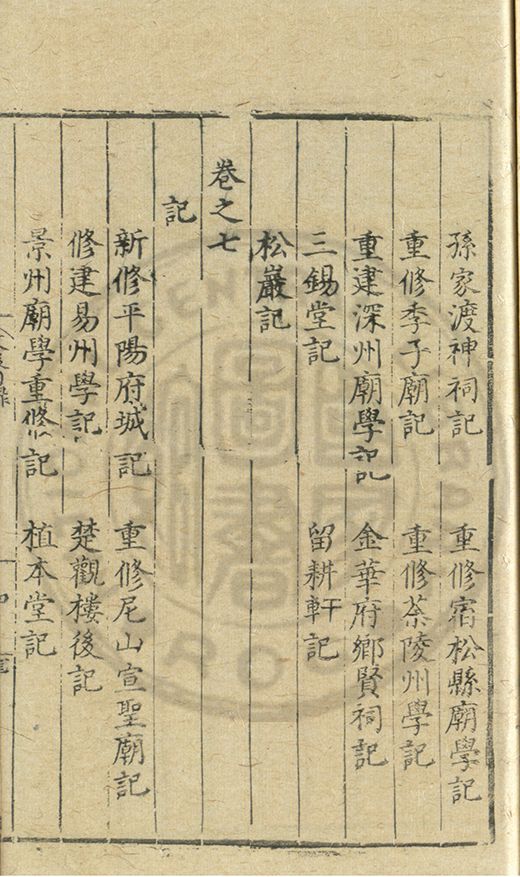 孫家渡神祠記 重修宿松縣廟學記
重修季子廟記 重修茶陵州學記
重建深州廟學記 金華府鄉賢祠記
三錫堂記 留耕軒記
松巖記
卷之七
記
新修平陽府城記 重修尼山宣聖廟記
修建易州學記 楚觀樓後記
景州廟學重修記 植本堂記